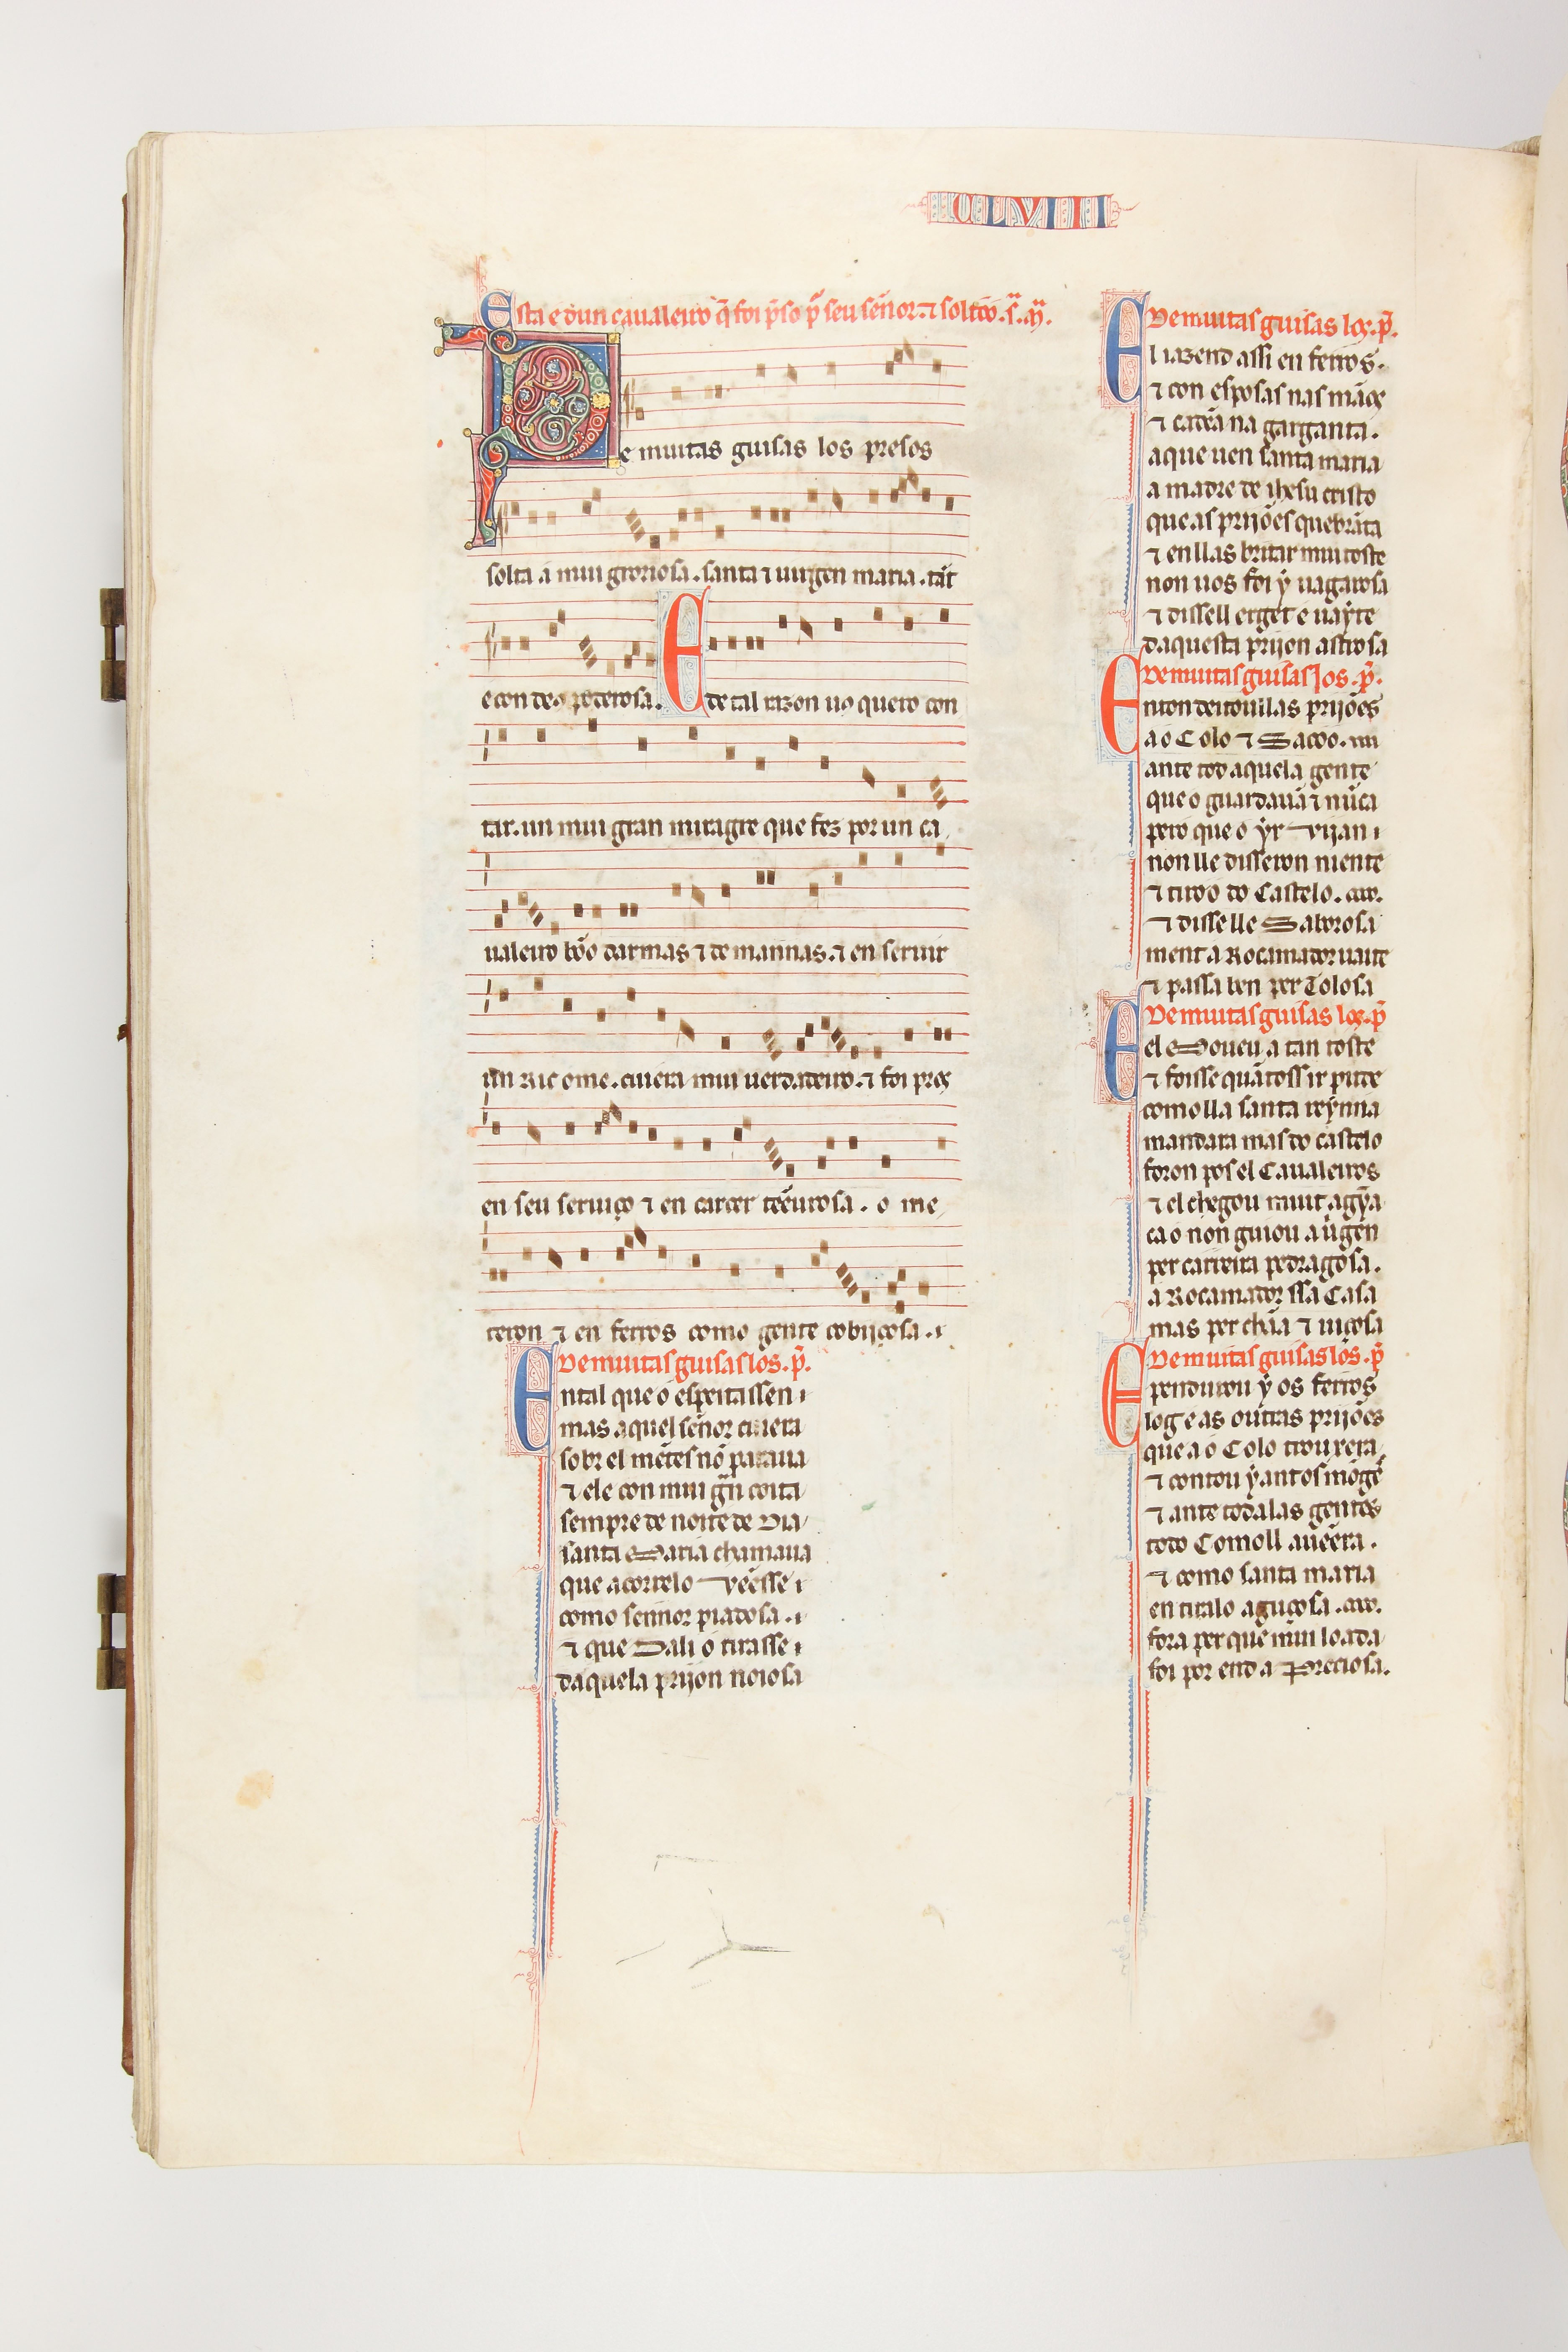 CLVIII
Esta e dun caualeiro q̄ foi p̄so p̃ seu sẽnor. ⁊ soltóó .s.ᵃ m̃.ᵃ
De muitas guisas los presos
solta a mui groriosa. santa ⁊ uirgen maria. tãt
e con deo poderosa. E de tal razon uo quero con
tar. un mui gran miragre que fez por un ca
ualeiro bõo darmas ⁊ de mannas. ⁊ en seruir
un Ric ome. cuiera mui uerdadeiro. ⁊ foi pres
en seu seruiço ⁊ en carcer tẽeurosa. o me
teron ⁊ en ferros como gente cobijçosa.
De muitas guisas los. p̃.
Ental que o espeitassen
mas aquel sẽnor cuiera
sobr el mẽtes nõ paraua
⁊ ele con mui grã coita
sempre de noite de Dia
santa Maria chamaua
que acorrelo Vẽesse
como sennor piadosa.
⁊ que Dali o tirasse
daquela prijon noiosa
De muitas guisas los. p̃.
El iazend assi en ferros.
⁊ con esposas nas mãos
⁊ cadẽa na garganta.
aque uen santa maria
a madre de ihesu cristo
que as prijões quebrãta
⁊ en llas britar mui toste
non uos foi ẏ uagarosa
⁊ dissell erget e uaẏte
daquesta prijon astrosa
De muitas guisas los. p̃.
Enton deitoullas prijões
ao Colo ⁊ Sacoo.
ante tod aquela gente
que o guardauã ⁊ nũca
pero que o ẏr Vijan
non lle disseron niente
⁊ tiroo do Castelo.
⁊ disselle Saborosa
ment a Rocamador uaite
⁊ passa ben per Tolosa
De muitas guisas los. p̃
El Moueu a tan toste
⁊ foisse quãtoss ir pode
comolla santa reẏnna
mandara mas do castelo
foron pos el Caualeiros
⁊ el chegou muit agẏ̃a
ca o non guiou a uirgen
per carreira pedragosa.
a Rocamador ssa Casa
mas per chãa ⁊ uiçosa
De muitas guisas los. p̃
E pendurou ẏ os ferros
log e as outras prijões
que a o Colo trouxera
⁊ contou ẏ antos mõges
⁊ ante todalas gentes
todo Comoll auẽera.
⁊ como santa maria
en tiralo aguçosa.
fora per que mui loada
foi por end a Preciosa.